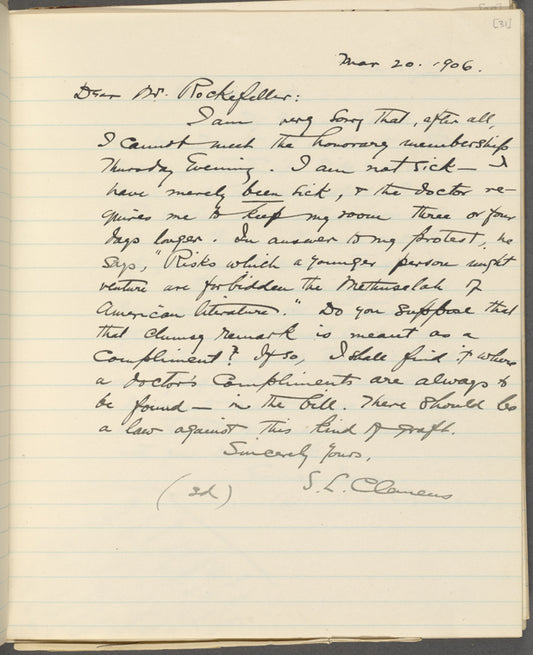 [31]
Mar 20. 1906.
Dear Mr. Rockefeller:
I am very sorry that, after all,
I cannot meet the honorary membership
Thursday Evening. I am not sick — I
have merely been sick, & the doctor re-
quires me to keep my room three or four
days longer. In answer to my protest, he
says, "Risks which a younger person might
venture are forbidden the Methuselah of
American literature." Do you suppose that
that clumsy remark is meant as a
compliment? If so, I shall find it where
a doctor's compliments are always to
be found — in the bill. There should be
a law against this kind of graft.
Sincerely Yours,
S. L. Clemens